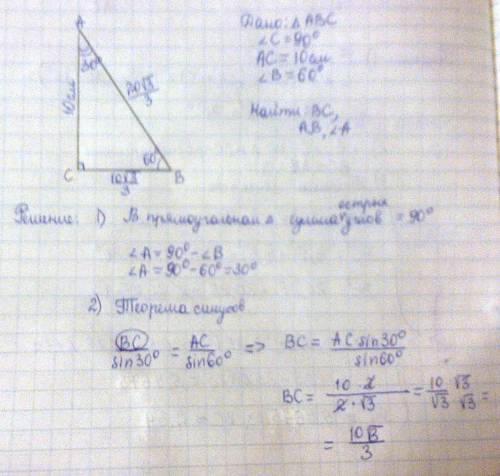 A
30°
10см
20√3
3
60°
C
B
10√3
3
Дано: △ABC
∠C=90°
AC=10см
∠B=60°
Найти: BC,
AB, ∠A
Решение: 1) В прямоугольном △ сумма острых углов = 90°
∠A=90°-∠B
∠A=90°-60°=30°
2) Теорема синусов
BC/sin30° = AC/sin60° => BC = AC sin30°/sin60°
BC = 10·2/2·√3 = 10/√3 √3/√3 =
= 10√3/3